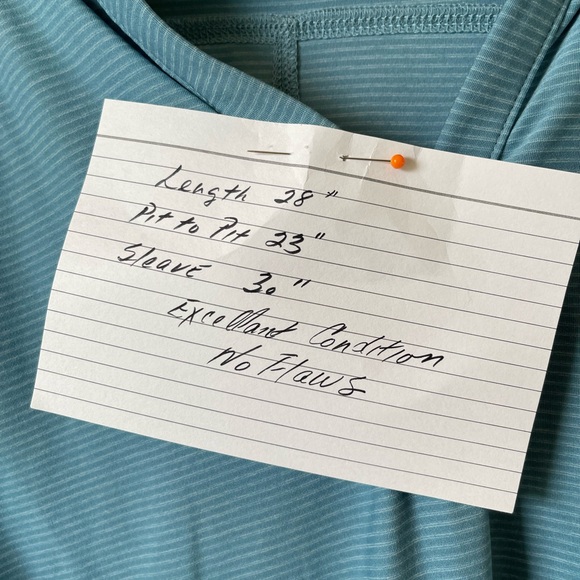 Length 28"
Pit to Pit 23"
Sleave 30"
Excellant Condition
No Flaws